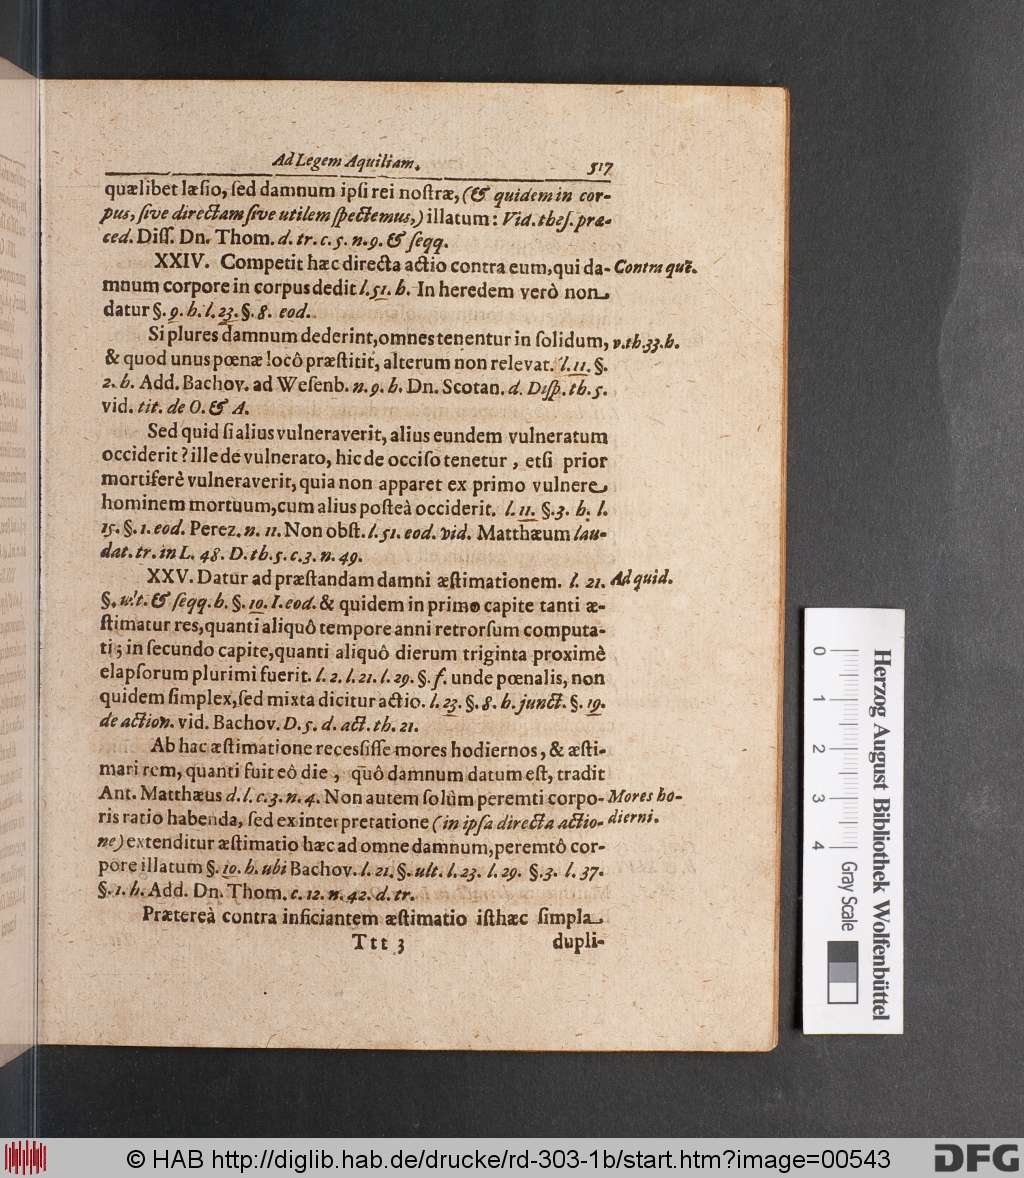 Ad Legem Aquiliam. 517
quælibet læsio, sed damnum ipsi rei nostræ, (& quidem in cor-
pus, sive directam sive utilem spectemus,) illatum: Vid. thes. præ-
ced. Diss. Dn. Thom. d. tr. c. 5. n. 9. & seqq.
XXIV. Competit hæc directa actio contra eum, qui da- Contra quē.
mnum corpore in corpus dedit l. 51. h. In heredem verò non
datur §. 9. h. l. 23. §. 8. eod.
Si plures damnum dederint, omnes tenentur in solidum, v. th. 33. h.
& quod unus pœnæ locô præstitit, alterum non relevat. l. 11. §.
2. h. Add. Bachov. ad Wesenb. n. 9. h. Dn. Scotan. d. Disp. th. 5.
vid. tit. de O. & A.
Sed quid si alius vulneraverit, alius eundem vulneratum
occiderit? ille de vulnerato, hic de occiso tenetur, etsi prior
mortiferè vulneraverit, quia non apparet ex primo vulnere
hominem mortuum, cum alius posteà occiderit. l. 11. §. 3. h. l.
15. §. 1. eod. Perez. n. 11. Non obst. l. 51. eod. vid. Matthæum lau-
dat. tr. in L. 48. D. th. 5. c. 3. n. 49.
XXV. Datur ad præstandam damni æstimationem. l. 21. Ad quid.
§. ult. & seqq. h. §. 10. I. eod. & quidem in primo capite tanti æ-
stimatur res, quanti aliquô tempore anni retrorsum computa-
ti; in secundo capite, quanti aliquô dierum triginta proximè
elapsorum plurimi fuerit. l. 2. l. 21. l. 29. §. f. unde pœnalis, non
quidem simplex, sed mixta dicitur actio. l. 23. §. 8. h. junct. §. 19.
de action. vid. Bachov. D. 5. d. act. th. 21.
Ab hac æstimatione recessisse mores hodiernos, & æsti-
mari rem, quanti fuit eô die, quô damnum datum est, tradit
Ant. Matthæus d. l. c. 3. n. 4. Non autem solùm peremti corpo- Mores ho-
ris ratio habenda, sed ex interpretatione (in ipsa directa actio- dierni.
ne) extenditur æstimatio hæc ad omne damnum, peremtô cor-
pore illatum §. 10. h. ubi Bachov. l. 21. §. ult. l. 23. l. 29. §. 3. l. 37.
§. 1. h. Add. Dn. Thom. c. 12. n. 42. d. tr.
Prætereà contra inficiantem æstimatio isthæc simpla
Ttt 3 dupli-
0 1 2 3 4
Gray Scale
Herzog August Bibliothek Wolfenbüttel
© HAB http://diglib.hab.de/drucke/rd-303-1b/start.htm?image=00543
DFG